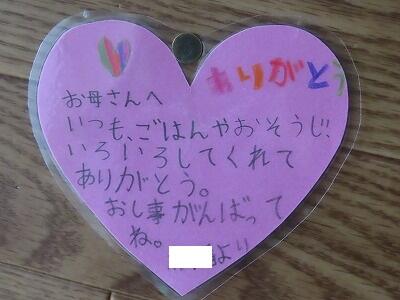 ありがとう
お母さんへ
いつも、ごはんやおそうじ、
いろいろしてくれて
ありがとう。
おし事がんばって
ね。
より